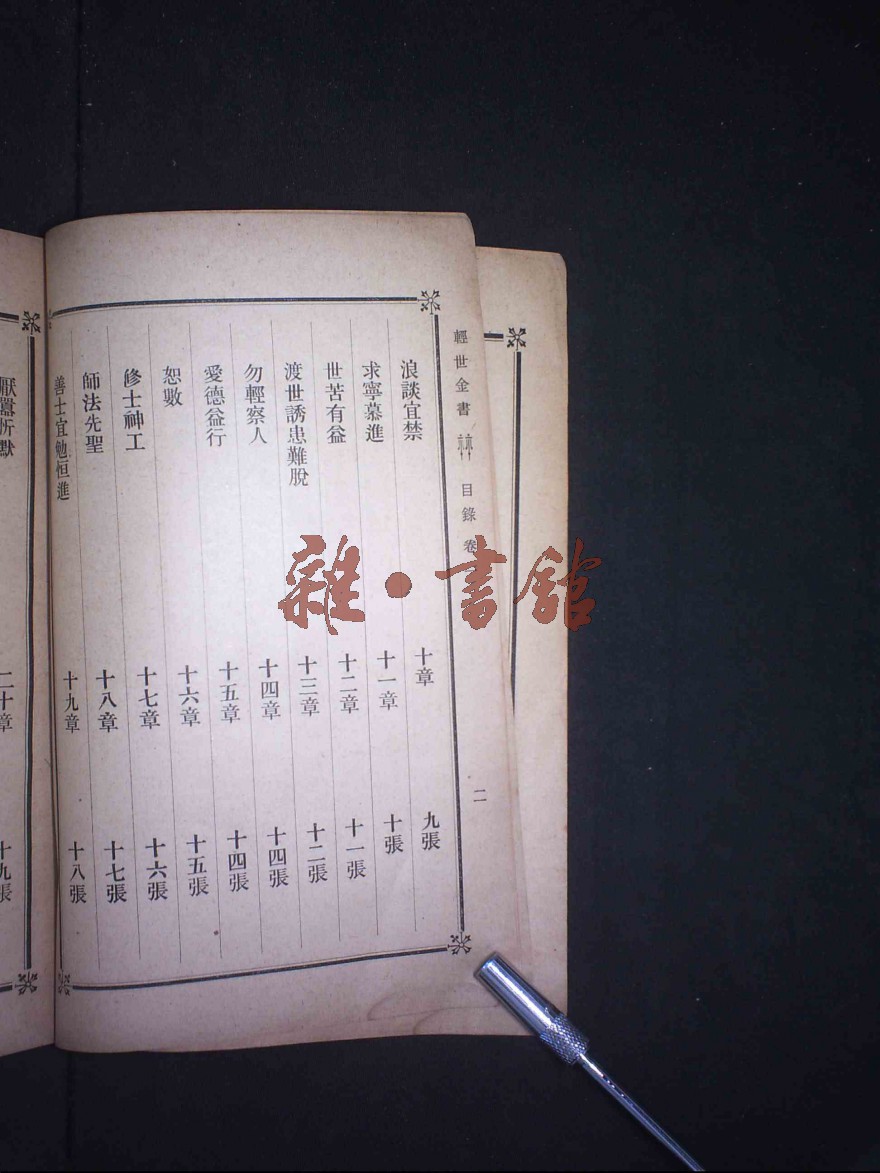 輕世金書 目錄 卷
二
浪談宜禁 十章 九張
求寧慕進 十一章 十張
世苦有益 十二章 十一張
渡世誘患難脫 十三章 十二張
勿輕察人 十四章 十四張
愛德益行 十五章 十四張
恕斁 十六章 十五張
修士神工 十七章 十六張
師法先聖 十八章 十七張
善士宜勉恒進 十九章 十八張
厭囂忻默 二十章 十九張
雜·書館